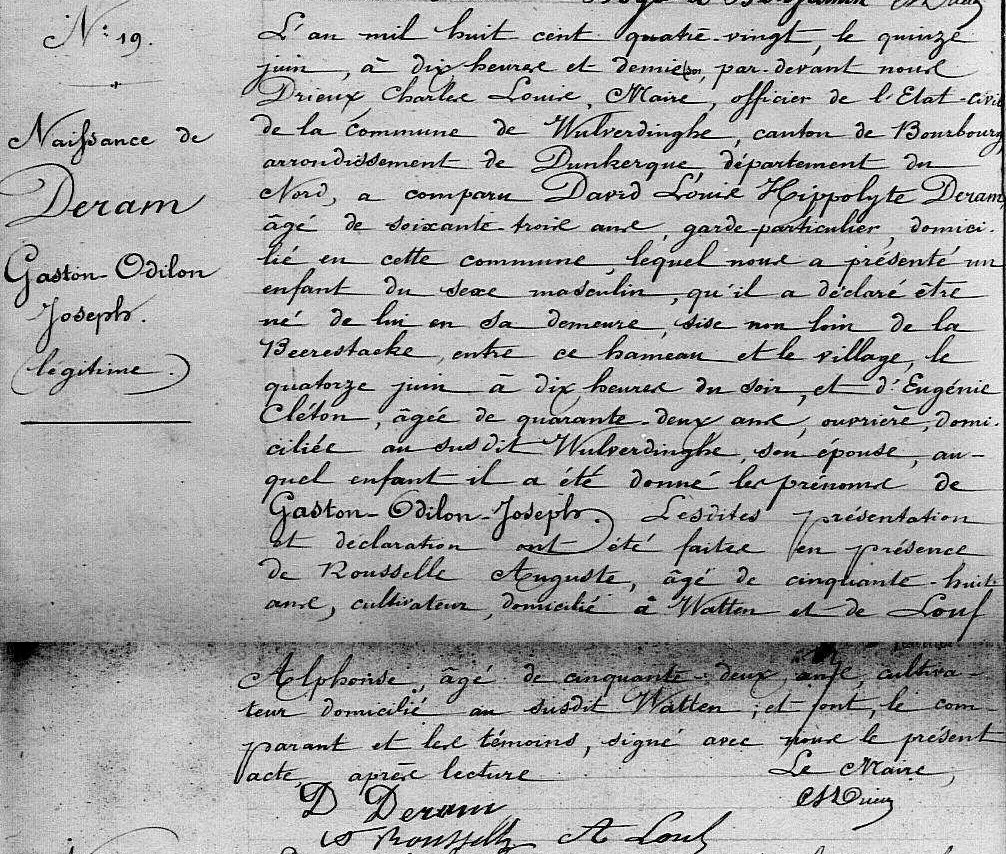 N.° 19.
Naissance de
Deram
Gaston-Odilon
Joseph.
(légitime.)
L'an mil huit cent quatre-vingt, le quinze
juin, à dix heures et demie, par-devant nous
Drieux, Charles Louis, Maire, officier de l'Etat-civil
de la Commune de Wulverdinghe, canton de Bourbourg
arrondissement de Dunkerque, département du
Nord, a comparu David Louis Hippolyte Deram,
âgé de soixante-trois ans, garde-particulier, domici-
lié en cette commune, lequel nous a présenté un
enfant du sexe masculin, qu'il a déclaré être
né de lui en sa demeure, sise non loin de la
Beerestacke, entre ce hameau et le village, le
quatorze juin à dix heures du soir, et d'Eugénie
Cléton, âgée de quarante-deux ans, ouvrière, domi-
ciliée au susdit Wulverdinghe, son épouse, au-
quel enfant il a été donné les prénoms de
Gaston-Odilon-Joseph. Lesdites présentation
et déclaration ont été faites en présence
de Rousselle Auguste, âgé de cinquante-huit
ans, cultivateur, domicilié à Watten et de Louf
Alphonse, âgé de cinquante-deux ans, cultiva-
teur domicilié au susdit Watten; et ont, le com-
parant et les témoins, signé avec nous le présent
acte, après lecture
Le Maire,
D Deram
Rousselle A Louf